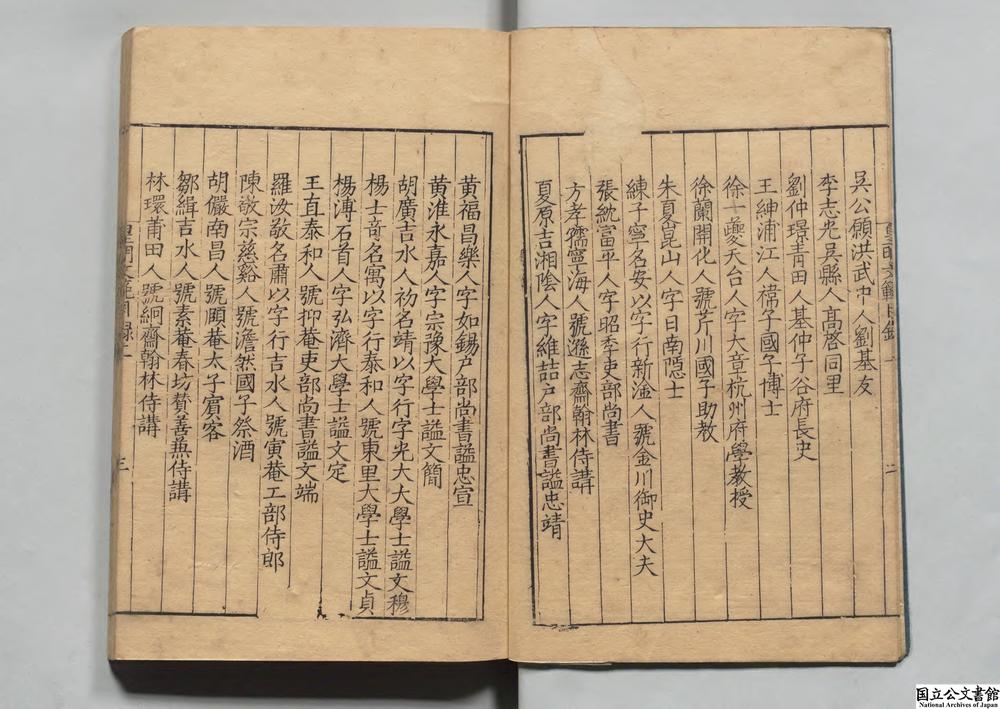 吳公願洪武中人劉基友
李志光吳縣人高啓同里
劉仲璟青田人基仲子谷府長史
王紳浦江人禕子國子博士
徐一夔天台人字大章杭州府學教授
徐蘭開化人號芹川國子助教
朱夏崑山人字日南隱士
練子寧名安以字行新淦人號金川御史大夫
張紞富平人字昭季吏部尚書
方孝孺寧海人號遜志齋翰林侍講
夏原吉湘陰人字維喆户部尚書謚忠靖
皇明文範目錄
二
黃福昌樂人字如錫户部尚書謚忠宣
黃淮永嘉人字宗豫大學士謚文簡
胡廣吉水人初名靖以字行字光大大學士謚文穆
楊士奇名寓以字行泰和人號東里大學士謚文貞
楊溥石首人字弘濟大學士謚文定
王直泰和人號抑菴吏部尚書謚文端
羅汝敬名肅以字行吉水人號寅菴工部侍郎
陳敬宗慈谿人號澹然國子祭酒
胡儼南昌人號頤菴太子賓客
鄒緝吉水人號素菴春坊贊善兼侍講
林環莆田人號絅齋翰林侍講
三
国立公文書館
National Archives of Japan